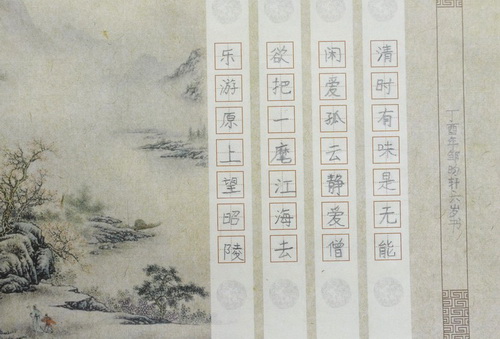 清时有味是无能
闲爱孤云静爱僧
欲把一麾江海去
乐游原上望昭陵
丁酉年 轩六岁书